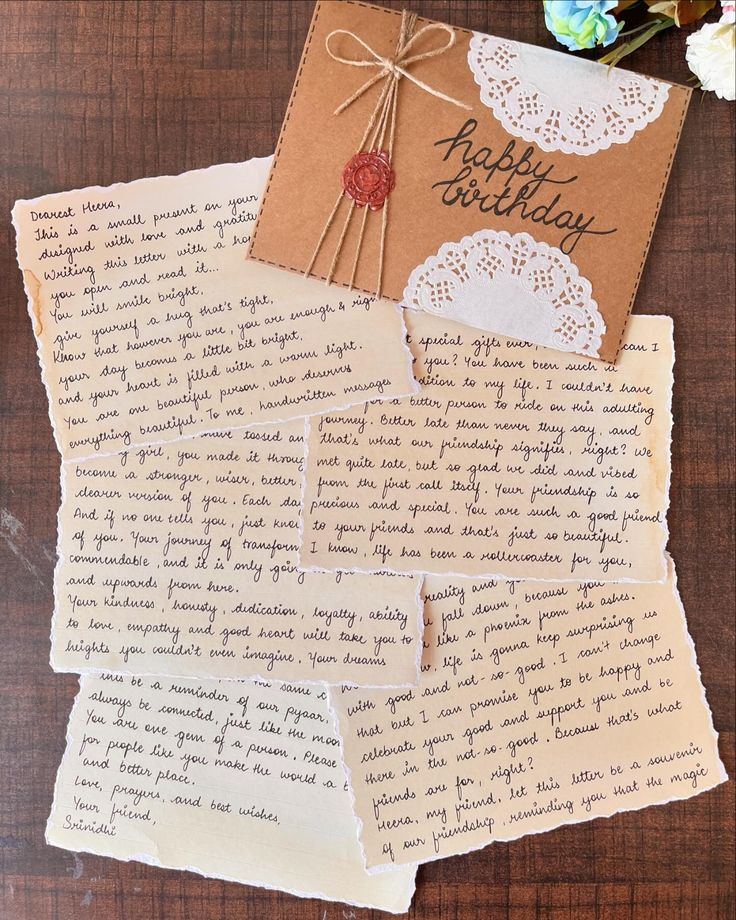 happy
birthday
Dearest Heera,
This is a small present on your
designed with love and gratitu
Writing this letter with a ho
you open and read it...
You will smile bright,
give yourself a hug that's tight,
Know that however you are, you are enough & righ
your day becomes a little bit bright,
and your heart is filled with a warm light.
You are one beautiful person, who deserves
everything beautiful. To me, handwritten messages
special gifts ever, can I
you? You have been such a
dition to my life. I couldn't have
for a better person to ride on this adulting
journey. Better late than never they say, and
that's what our friendship signifies, right? We
met quite late, but so glad we did and vibed
from the first call itself. Your friendship is so
precious and special. You are such a good friend
to your friends and that's just so beautiful.
I know, life has been a rollercoaster for you,
have tossed an
girl, you made it throug
become a stronger, wiser, better
clearer version of you. Each da
And if no one tells you, just know
of you. Your journey of transform
commendable, and it is only going
and upwards from here.
Your kindness, honesty, dedication, loyalty, ability
to love, empathy and good heart will take you to
heights you couldn't even imagine. Your dreams
reality and yo
fall down, because you
like a phoenix from the ashes.
life is gonna keep surprising us
with good and not-so-good. I can't change
that but I can promise you to be happy and
celebrate your good and support you and be
there in the not-so-good. Because that's what
friends are for, right?
Heera, my friend, let this letter be a souvenir
of our friendship, reminding you that the magic
the same
this be a reminder of our pyaar,
always be connected, just like the moon
You are one gem of a person. Please
for people like you make the world a b
and better place.
Love, prayers, and best wishes,
Your friend,
Srinidhi